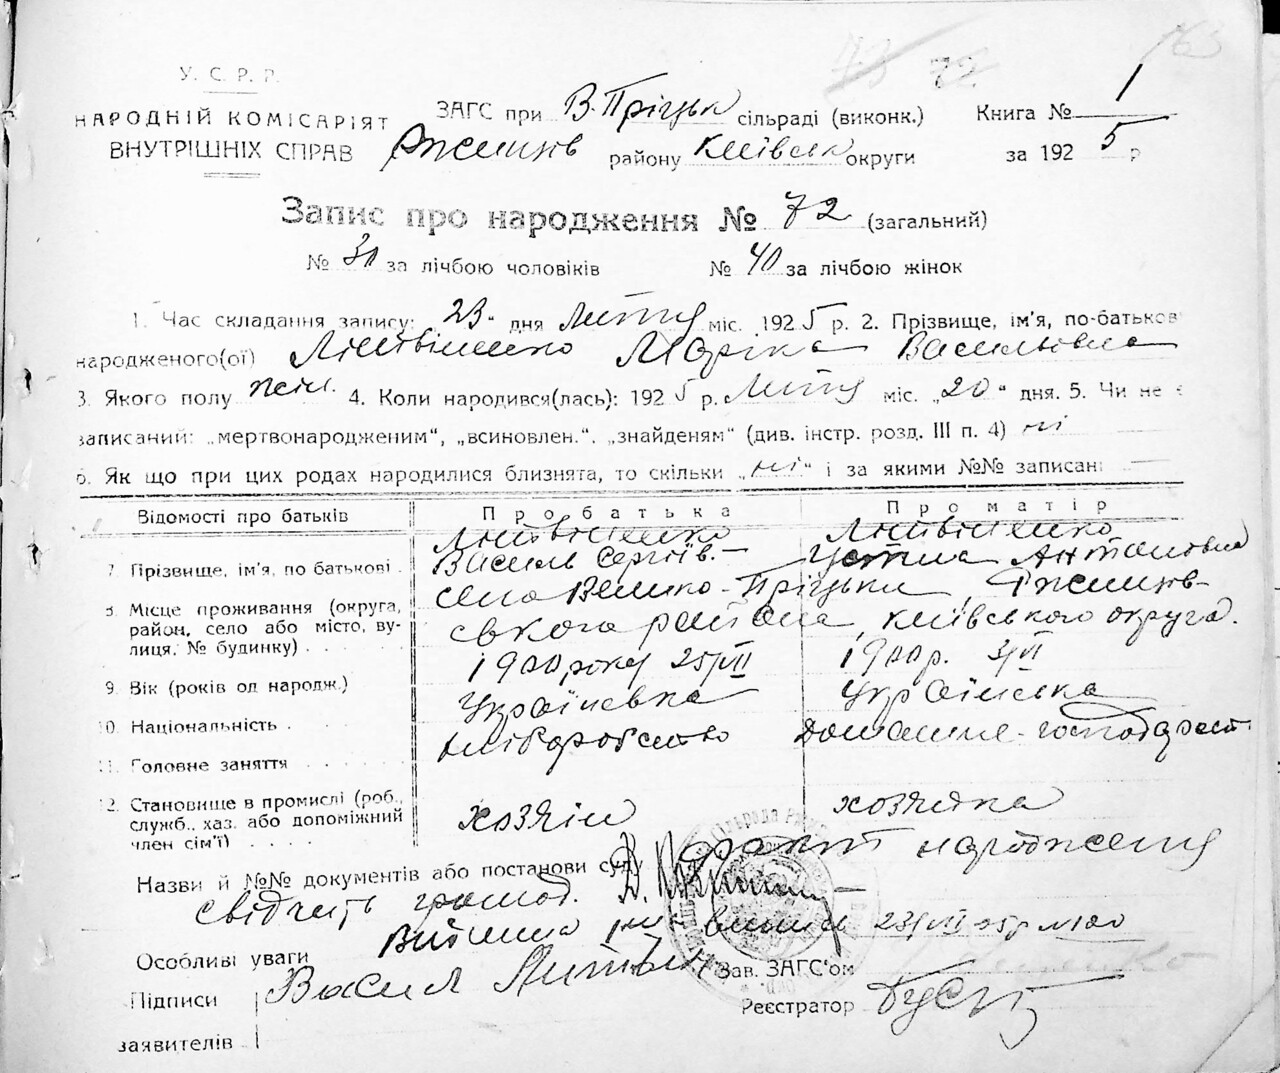 163
73 72
У. С. Р. Р.
НАРОДНІЙ КОМІСАРІЯТ
ВНУТРІШНІХ СПРАВ
ЗАГС при В-Пріцьк сільраді (виконк.)
Ржищів району Київськ округи
Книга № 1
за 1925 р
Запис про народження № 72 (загальний)
№ 31 за лічбою чоловіків № 40 за лічбою жінок
1. Час складання запису: „23“ дня Лютня міс. 1925 р. 2. Прізвище, ім'я, по-батькові
народженого(ої) Літвіненко Маріка Васильовна
3. Якого полу жін. 4. Коли народився(лась): 1925 р. Лютня міс. „20“ дня. 5. Чи не є
записаний: „мертвонародженим“, „всиновлен.“, „знайденям“ (див. інстр. розд. III п. 4) ні
6. Як що при цих родах народилися близнята, то скільки „ні“ і за якими №№ записані
Відомості про батьків Про батька Про матір
7. Прізвище, ім'я, по батькові Літвіненко Василь Сергіїв. Літвіненко Устина Антоновна
8. Місце проживання (округа, район, село або місто, вулиця, № будинку) село Велико-Пріцьки, Ржищівського района, Київського округа.
9. Вік (років од народж.) 1900 року 25/VII 1900 р. 3/VI
10. Національність Українська Українська
11. Головне заняття хліборобство Домашнє-господарст.
12. Становище в промислі (роб., служб., хаз. або допоміжний член сім'ї) хозяїн хозяйка
Назви й №№ документів або постанови суду факт народження
свідчить громад.
Особливі уваги
Підписи Васил Литвин
заявителів
Зав. ЗАГС'ом
Реєстратор